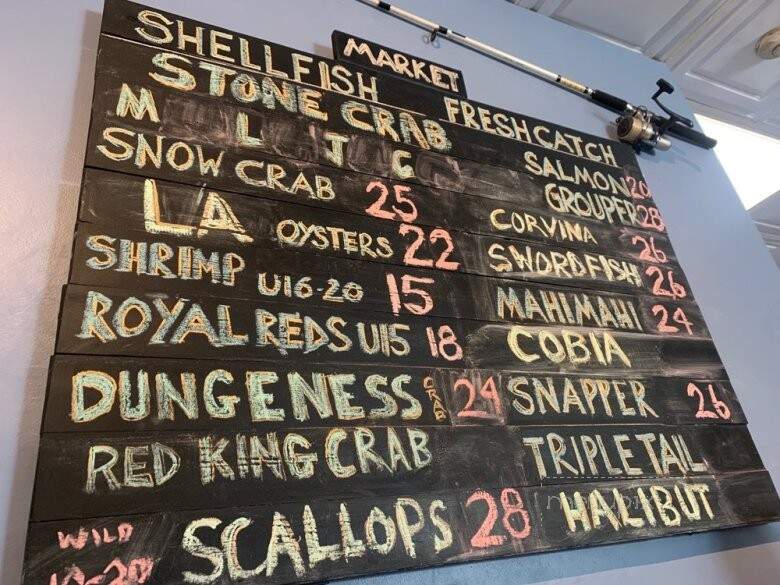 MARKET
SHELLFISH
STONE CRAB
M L J C
SNOW CRAB 25
LA OYSTERS 22
SHRIMP U16-20 15
ROYAL REDS U15 18
DUNGENESS CRAB 24
RED KING CRAB
WILD 10-20 SCALLOPS 28
FRESH CATCH
SALMON 20
GROUPER 28
CORVINA 26
SWORDFISH 26
MAHI MAHI 24
COBIA
SNAPPER 26
TRIPLE TAIL
HALIBUT